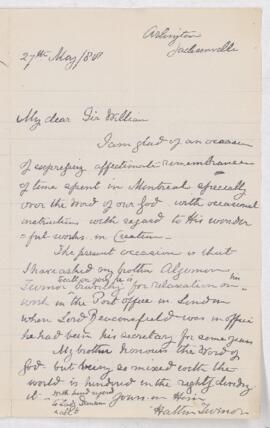 Arlington
Jacksonville
27th May /88
My dear Sir William
I am glad of an occasion
of expressing affectionate remembrance
of time spent in Montreal specially
over the Word of our God with occasional
instruction with regard to His wonder
=ful works in Creation
The present occasion is that
I have asked my brother Algernon
to call on you, he is
Turnor travelling for relaxation from
work in the Post office in London
when Lord Beaconsfield was in office
he had been his secretary for some years
My brother honours the Word of
God but being so mixed with the
world is hindred in the rightly dividing
it
With kind regard
to Lady Dawson
& all
Yours in Him